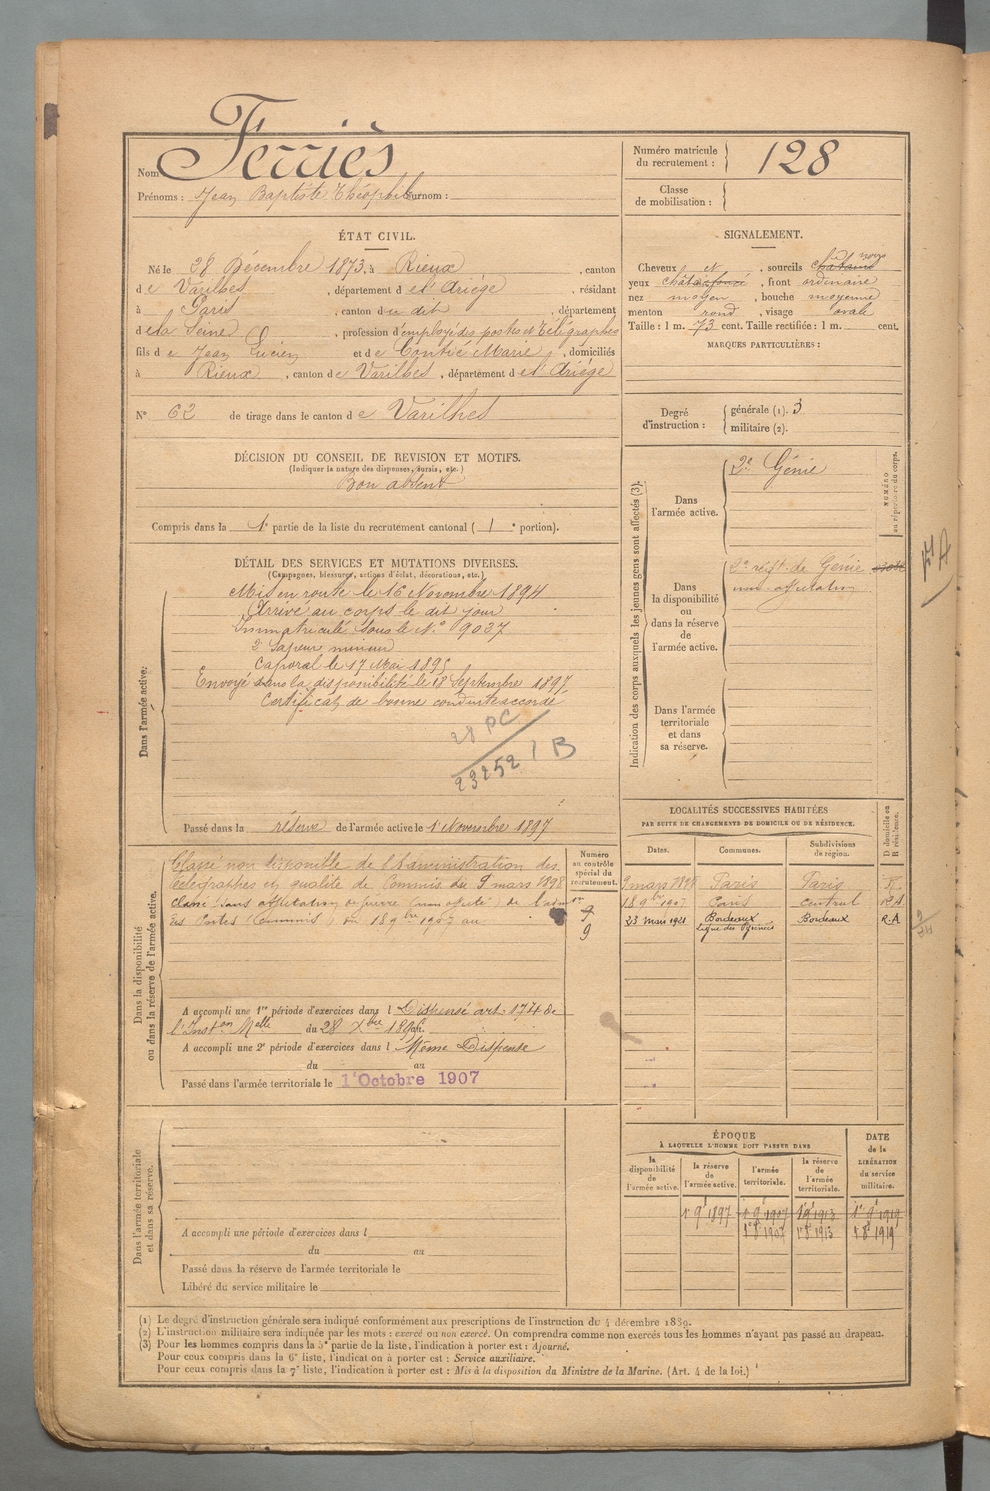 Nom Ferriès
Prénoms : Jean Baptiste Théophile Surnom :
Numéro matricule du recrutement : 128
Classe de mobilisation :
ÉTAT CIVIL.
Né le 28 Décembre 1873, à Rieux, canton
de Varilhes, département de l'Ariège, résidant
à Paris, canton du dit, département
de la Seine, profession d'employé des postes et Télégraphes
fils de Jean Lucien et de Contié Marie, domiciliés
à Rieux, canton de Varilhes, département de l'Ariège
N° 62 de tirage dans le canton de Varilhes
SIGNALEMENT.
Cheveux et, sourcils châtains noirs
yeux, front ordinaire
nez moyen, bouche moyenne
menton rond, visage ovale
Taille : 1 m. 73 cent. Taille rectifiée : 1 m. cent.
MARQUES PARTICULIÈRES :
Degré d'instruction : générale (1). 3
militaire (2).
DÉCISION DU CONSEIL DE REVISION ET MOTIFS.
(Indiquer la nature des dispenses, sursis, etc.)
Bon absent
Compris dans la 1e partie de la liste du recrutement cantonal ( 1 e portion).
DÉTAIL DES SERVICES ET MUTATIONS DIVERSES.
(Campagnes, blessures, actions d'éclat, décorations, etc.)
Dans l'armée active.
Mis en route le 16 Novembre 1894
Arrivé au corps le dit jour
Immatriculé sous le N° 9027
2e Sapeur mineur
Caporal le 17 Mai 1895
Envoyé dans la disponibilité le 18 Septembre 1897
Certificat de bonne conduite accordé
28 PC
23252 / B
Passé dans la réserve de l'armée active le 1er Novembre 1897
Indication des corps auxquels les jeunes gens sont affectés (3).
NUMÉRO au répertoire du corps.
Dans l'armée active.
2e Génie
Dans la disponibilité ou dans la réserve de l'armée active.
2e régt de Génie
non affectation
Dans l'armée territoriale et dans sa réserve.
Dans la disponibilité ou dans la réserve de l'armée active.
Numéro au contrôle spécial du recrutement.
Classé non disponible de l'Administration des
télégraphes en qualité de Commis du 9 mars 1898
classé sans affectation de guerre (non affecté) de l'
des Postes (Commis) du 18 9bre 1907 au
9
9
A accompli une 1re période d'exercices dans l Dispensé art. 174 de
l'Inston Melle du 28 Xbre 1895.
A accompli une 2e période d'exercices dans l Même Dispense
du au
Passé dans l'armée territoriale le 1er Octobre 1907
LOCALITÉS SUCCESSIVES HABITÉES
PAR SUITE DE CHANGEMENTS DE DOMICILE OU DE RÉSIDENCE.
Dates. Communes. Subdivisions de région. D domicile ou R résidence.
9 mars 1898 Paris Paris R
18 9bre 1907 Paris Central RA
23 Mai 1921 Bordeaux Bordeaux R.A
Ligne des Pyrénées
Dans l'armée territoriale et dans sa réserve.
A accompli une période d'exercices dans l
du au
Passé dans la réserve de l'armée territoriale le
Libéré du service militaire le
ÉPOQUE
À LAQUELLE L'HOMME DOIT PASSER DANS
DATE de la LIBÉRATION du service militaire.
la disponibilité de l'armée active. la réserve de l'armée active. l'armée territoriale. la réserve de l'armée territoriale.
1er 9bre 1897 1er 9bre 1907 1er 9bre 1913 1er 9bre 1919
1er 8bre 1907 1er 8bre 1913 1er 8bre 1919
(1) Le degré d'instruction générale sera indiqué conformément aux prescriptions de l'instruction du 4 décembre 1889.
(2) L'instruction militaire sera indiquée par les mots : exercé ou non exercé. On comprendra comme non exercés tous les hommes n'ayant pas passé au drapeau.
(3) Pour les hommes compris dans la 5e partie de la liste, l'indication à porter est : Ajourné.
Pour ceux compris dans la 6e liste, l'indication à porter est : Service auxiliaire.
Pour ceux compris dans la 7e liste, l'indication à porter est : Mis à la disposition du Ministre de la Marine. (Art. 4 de la loi.)